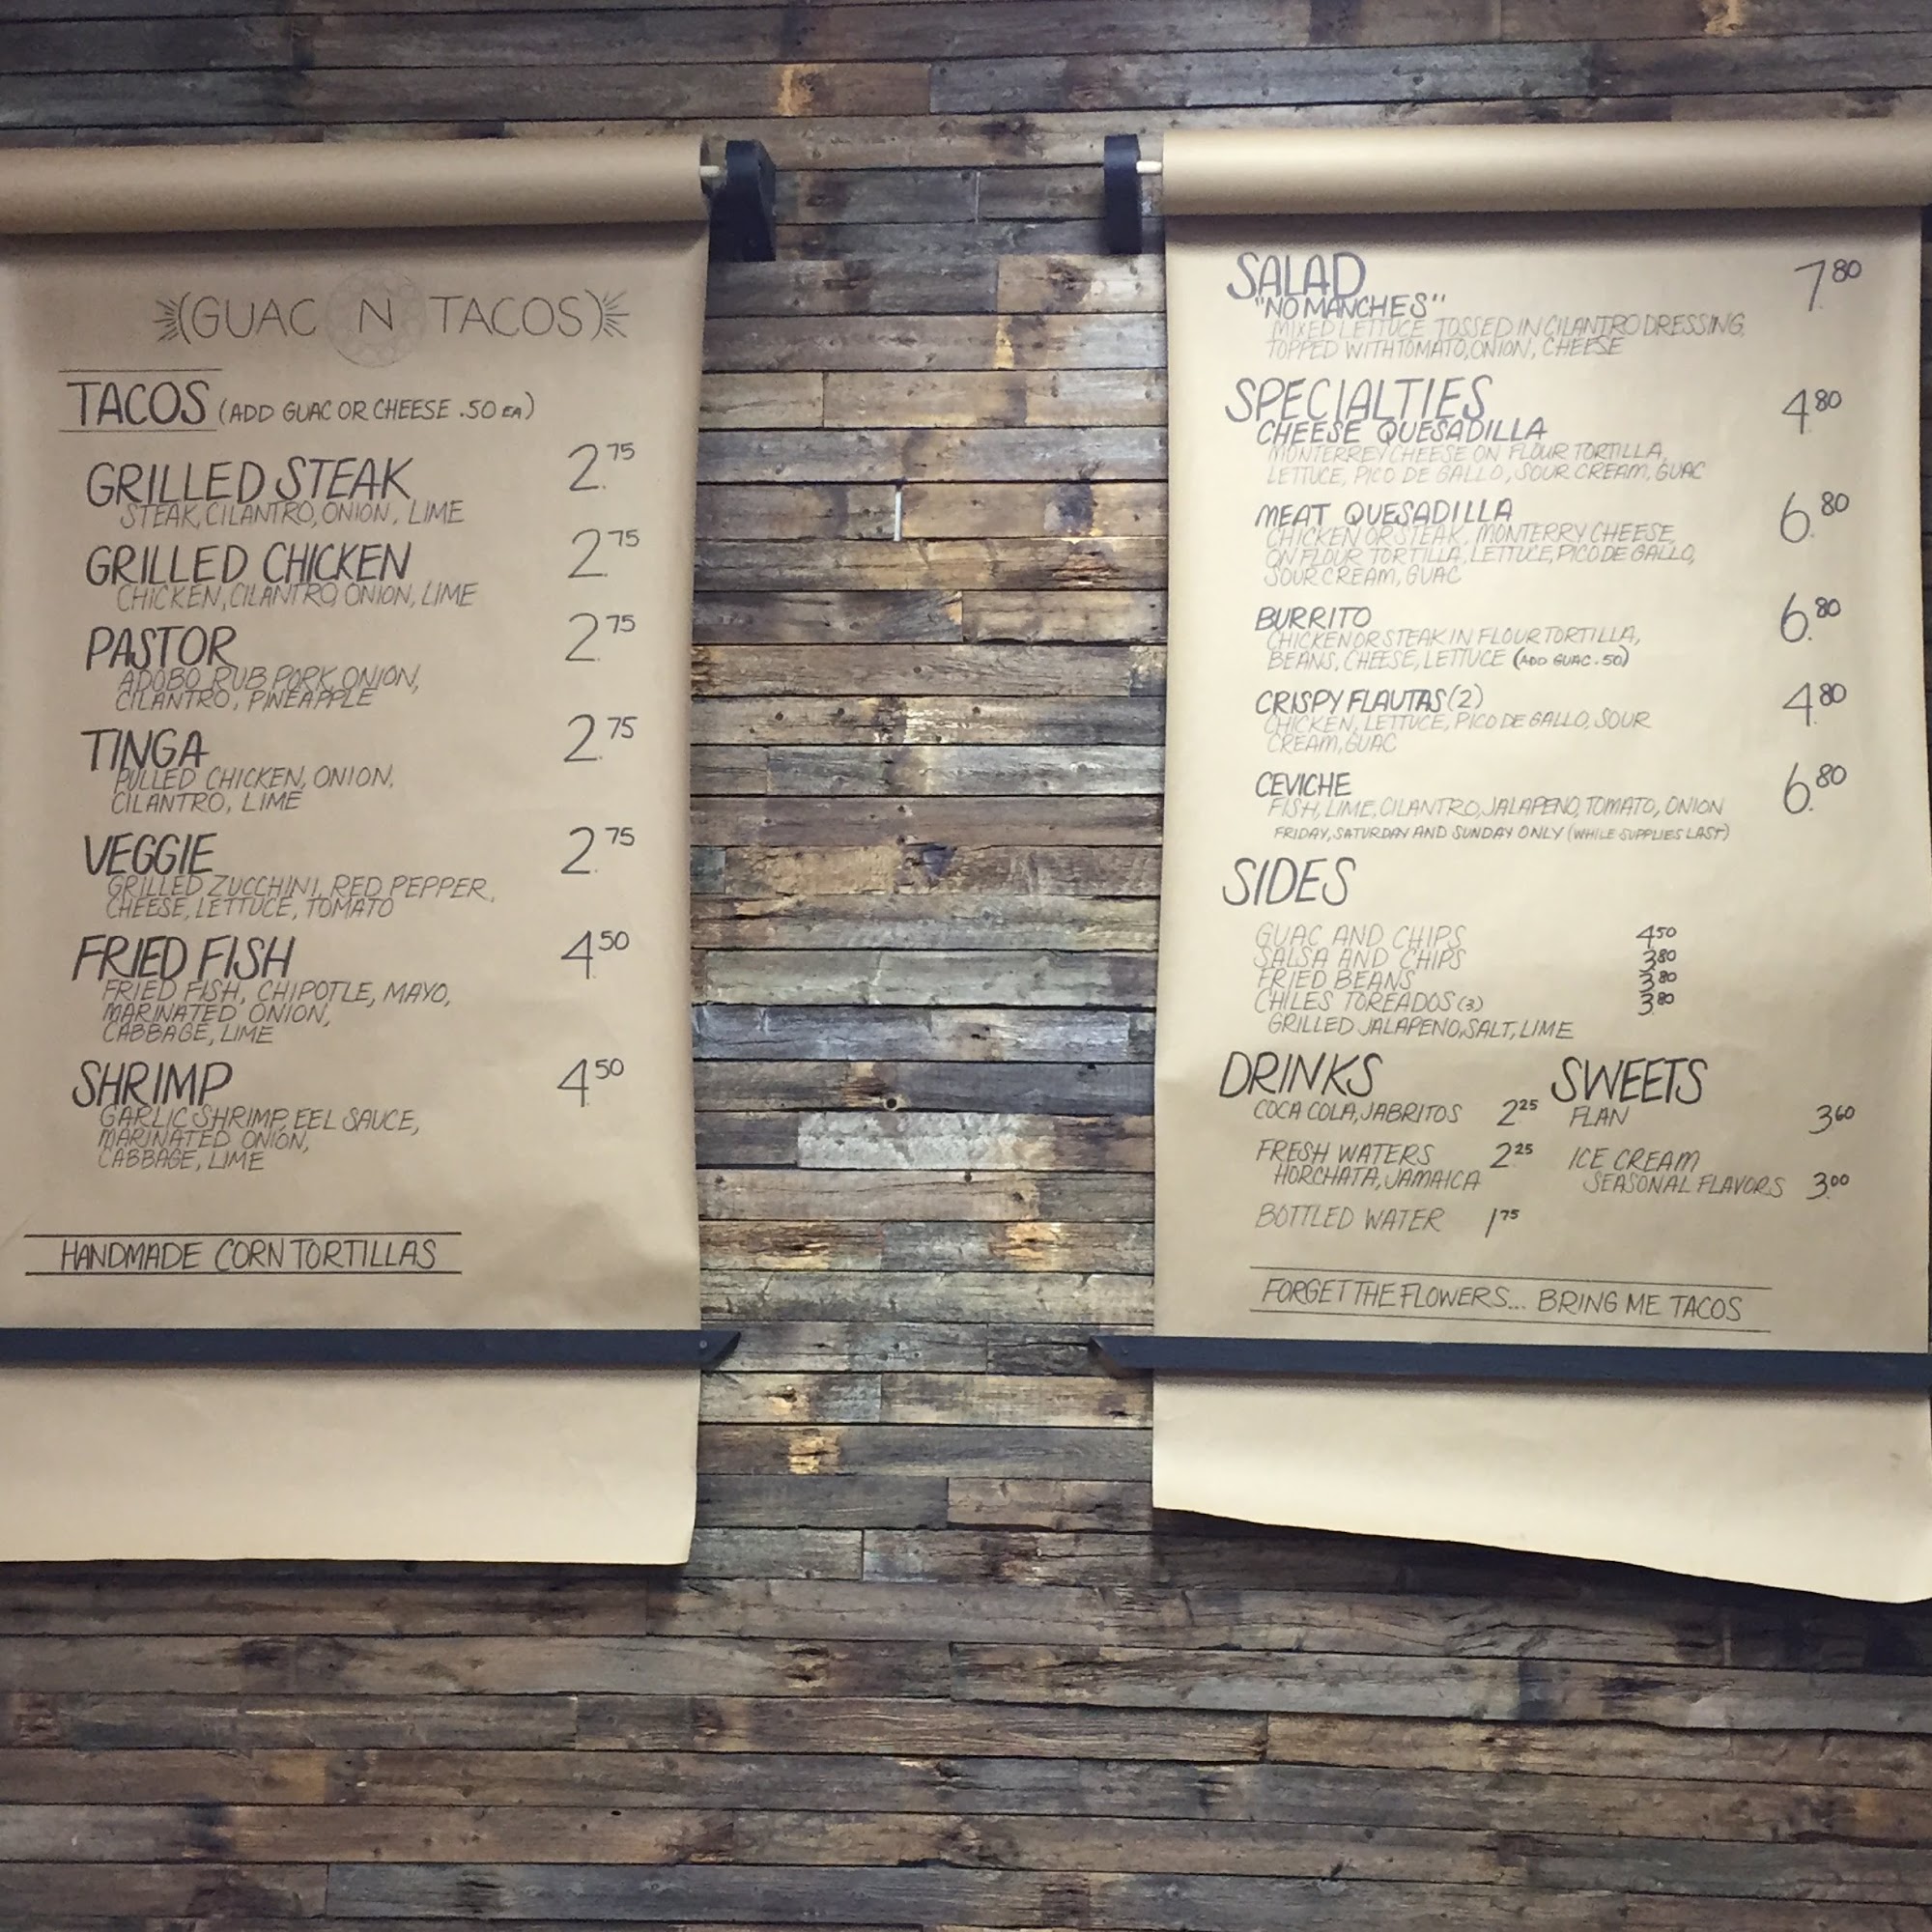 (GUAC N TACOS)
TACOS (ADD GUAC OR CHEESE .50 EA)
GRILLED STEAK 2.75
STEAK, CILANTRO, ONION, LIME
GRILLED CHICKEN 2.75
CHICKEN, CILANTRO, ONION, LIME
PASTOR 2.75
ADOBO RUB PORK, ONION,
CILANTRO, PINEAPPLE
TINGA 2.75
PULLED CHICKEN, ONION,
CILANTRO, LIME
VEGGIE 2.75
GRILLED ZUCCHINI, RED PEPPER,
CHEESE, LETTUCE, TOMATO
FRIED FISH 4.50
FRIED FISH, CHIPOTLE, MAYO,
MARINATED ONION,
CABBAGE, LIME
SHRIMP 4.50
GARLIC SHRIMP, EEL SAUCE,
MARINATED ONION,
CABBAGE, LIME
HANDMADE CORN TORTILLAS
SALAD 7.80
"NO MANCHES"
MIXED LETTUCE, TOSSED IN CILANTRO DRESSING,
TOPPED WITH TOMATO, ONION, CHEESE
SPECIALTIES
CHEESE QUESADILLA 4.80
MONTERREY CHEESE ON FLOUR TORTILLA,
LETTUCE, PICO DE GALLO, SOUR CREAM, GUAC
MEAT QUESADILLA 6.80
CHICKEN OR STEAK, MONTERRY CHEESE,
ON FLOUR TORTILLA, LETTUCE, PICO DE GALLO,
SOUR CREAM, GUAC
BURRITO 6.80
CHICKEN OR STEAK IN FLOUR TORTILLA,
BEANS, CHEESE, LETTUCE (ADD GUAC .50)
CRISPY FLAUTAS (2) 4.80
CHICKEN, LETTUCE, PICO DE GALLO, SOUR
CREAM, GUAC
CEVICHE 6.80
FISH, LIME, CILANTRO, JALAPENO, TOMATO, ONION
FRIDAY, SATURDAY AND SUNDAY ONLY (WHILE SUPPLIES LAST)
SIDES
GUAC AND CHIPS 4.50
SALSA AND CHIPS 3.80
FRIED BEANS 3.80
CHILES TOREADOS (3) 3.80
GRILLED JALAPENO, SALT, LIME
DRINKS
COCA COLA, JABRITOS 2.25
FRESH WATERS 2.25
HORCHATA, JAMAICA
BOTTLED WATER 1.75
SWEETS
FLAN 3.60
ICE CREAM
SEASONAL FLAVORS 3.00
FORGET THE FLOWERS... BRING ME TACOS